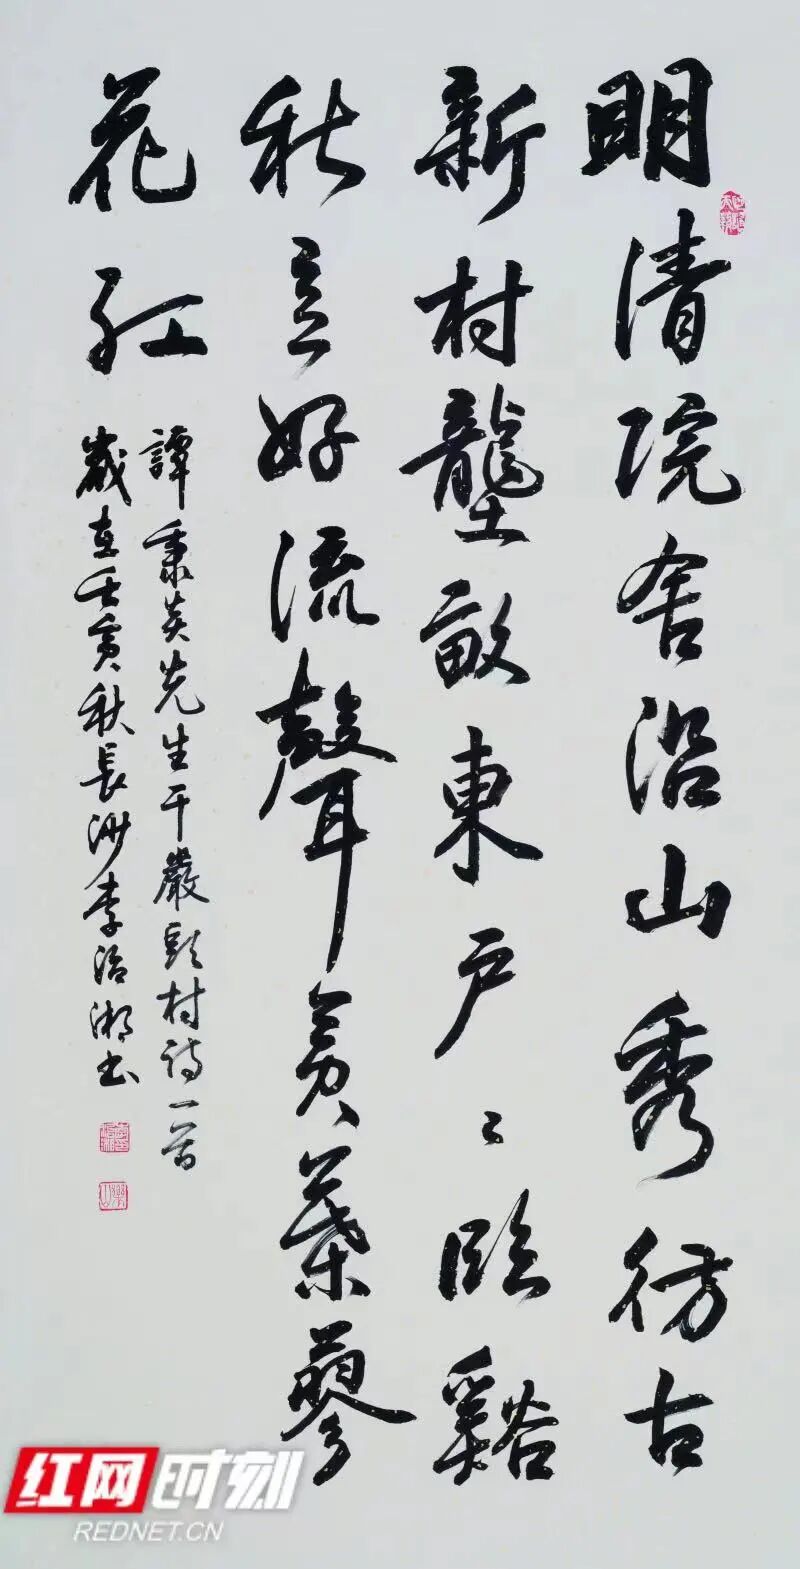 明清院舍沿山秀彷古
新村壟畝東戶〻臨谿
秋意好流聲黃葉蓼
花紅
譚秉炎先生干巖頭村詩一首
歲在壬寅秋長沙李治湘書
红网时刻
REDNET.CN